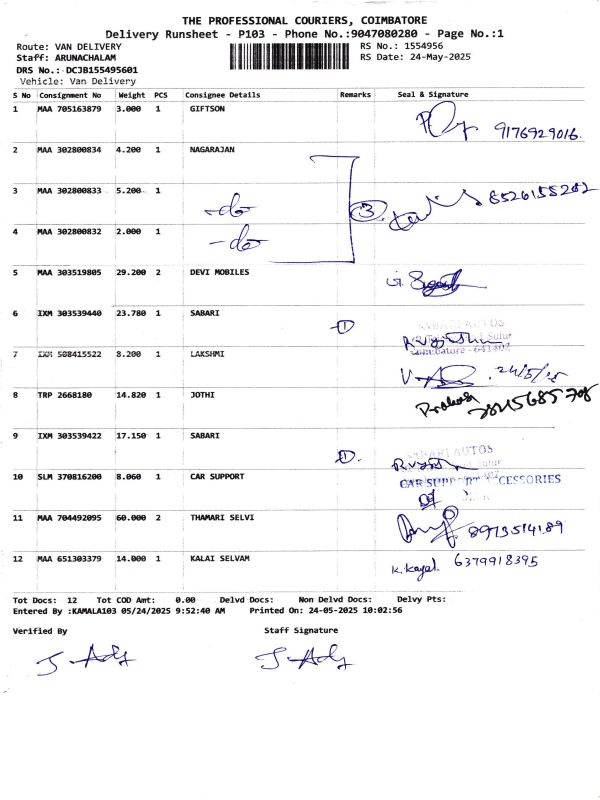 THE PROFESSIONAL COURIERS, COIMBATORE
Delivery Runsheet - P103 - Phone No.:9047080280 - Page No.:1
Route: VAN DELIVERY RS No.: 1554956
Staff: ARUNACHALAM RS Date: 24-May-2025
DRS No.: DCJB155495601
Vehicle: Van Delivery
S No Consignment No Weight PCS Consignee Details Remarks Seal & Signature
1 MAA 705163879 3.000 1 GIFTSON
9176929016.
2 MAA 302800834 4.200 1 NAGARAJAN
3 MAA 302800833 5.200 1
-do- 3 8526155282
4 MAA 302800832 2.000 1
-do-
5 MAA 303519805 29.200 2 DEVI MOBILES
6 IXM 303539440 23.780 1 SABARI
1 AUTOS
Sulur
Coimbatore - 641402
7 IXM 508415522 8.200 1 LAKSHMI
24/5/25
8 TRP 2668180 14.820 1 JOTHI
9 IXM 303539422 17.150 1 SABARI
1. AUTOS
10 SLM 370816200 8.060 1 CAR SUPPORT
CAR SUPPORT ACCESSORIES
11 MAA 704492095 60.000 2 THAMARI SELVI
8973514189
12 MAA 651303379 14.000 1 KALAI SELVAM
K. Kayal. 6379918395
Tot Docs: 12 Tot COD Amt: 0.00 Delvd Docs: Non Delvd Docs: Delvy Pts:
Entered By :KAMALA103 05/24/2025 9:52:40 AM Printed On: 24-05-2025 10:02:56
Verified By Staff Signature